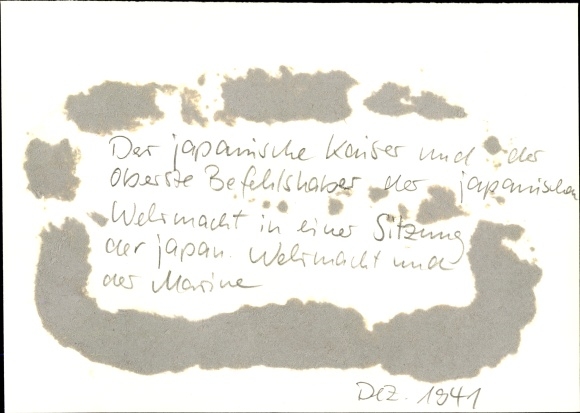 Der japanische Kaiser und der
oberste Befehlshaber der japanischen
Wehrmacht in einer Sitzung
der japan. Wehrmacht und
der Marine
Dez. 1941